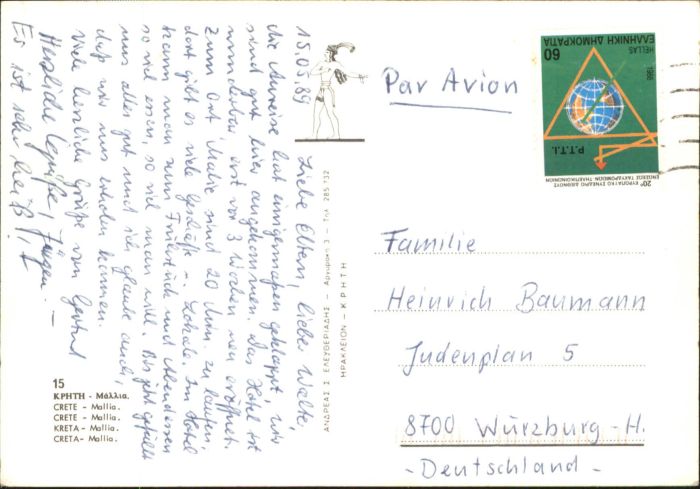 15.05.89
Liebe Eltern, liebe Walte,
die Anreise hat einigermaßen geklappt, wir
sind gut hier angekommen. Das Hotel ist
wunderbar, erst vor 3 Wochen neu eröffnet.
Zum Ort Malia sind 20 Min. zu laufen,
dort gibt es viele Geschäfte u. Lokale. Im Hotel
kann man zum Frühstück und Abendessen
so viel essen, so viel man will. Bis jetzt gefällt
uns alles gut und ich glaube auch,
daß wir uns erholen können.
Viele herzliche Grüße von
Herzliche Grüße, Jürgen. –
Es ist sehr heiß!
15
ΚΡΗΤΗ - Μάλλια.
CRETE - Mallia.
CRETE - Mallia.
KRETA - Mallia.
CRETA - Mallia.
ΑΝΔΡΕΑΣ Σ ΕΛΕΥΘΕΡΙΑΔΗΣ - Αργυράκη 3 - Τηλ 285.732
ΗΡΑΚΛΕΙΟΝ - ΚΡΗΤΗ
Par Avion
60
HELLAS
ΕΛΛΗΝΙΚΗ ΔΗΜΟΚΡΑΤΙΑ
1988
P.T.T.I.
20ο ΕΥΡΩΠΑΪΚΟ ΣΥΝΕΔΡΙΟ ΔΙΕΘΝΟΥΣ
ΕΝΩΣΕΩΣ ΤΑΧΥΔΡΟΜΕΙΩΝ ΤΗΛΕΠΙΚΟΙΝΩΝΙΩΝ
Familie
Heinrich Baumann
Judenplan 5
8700 Würzburg-H.
- Deutschland -